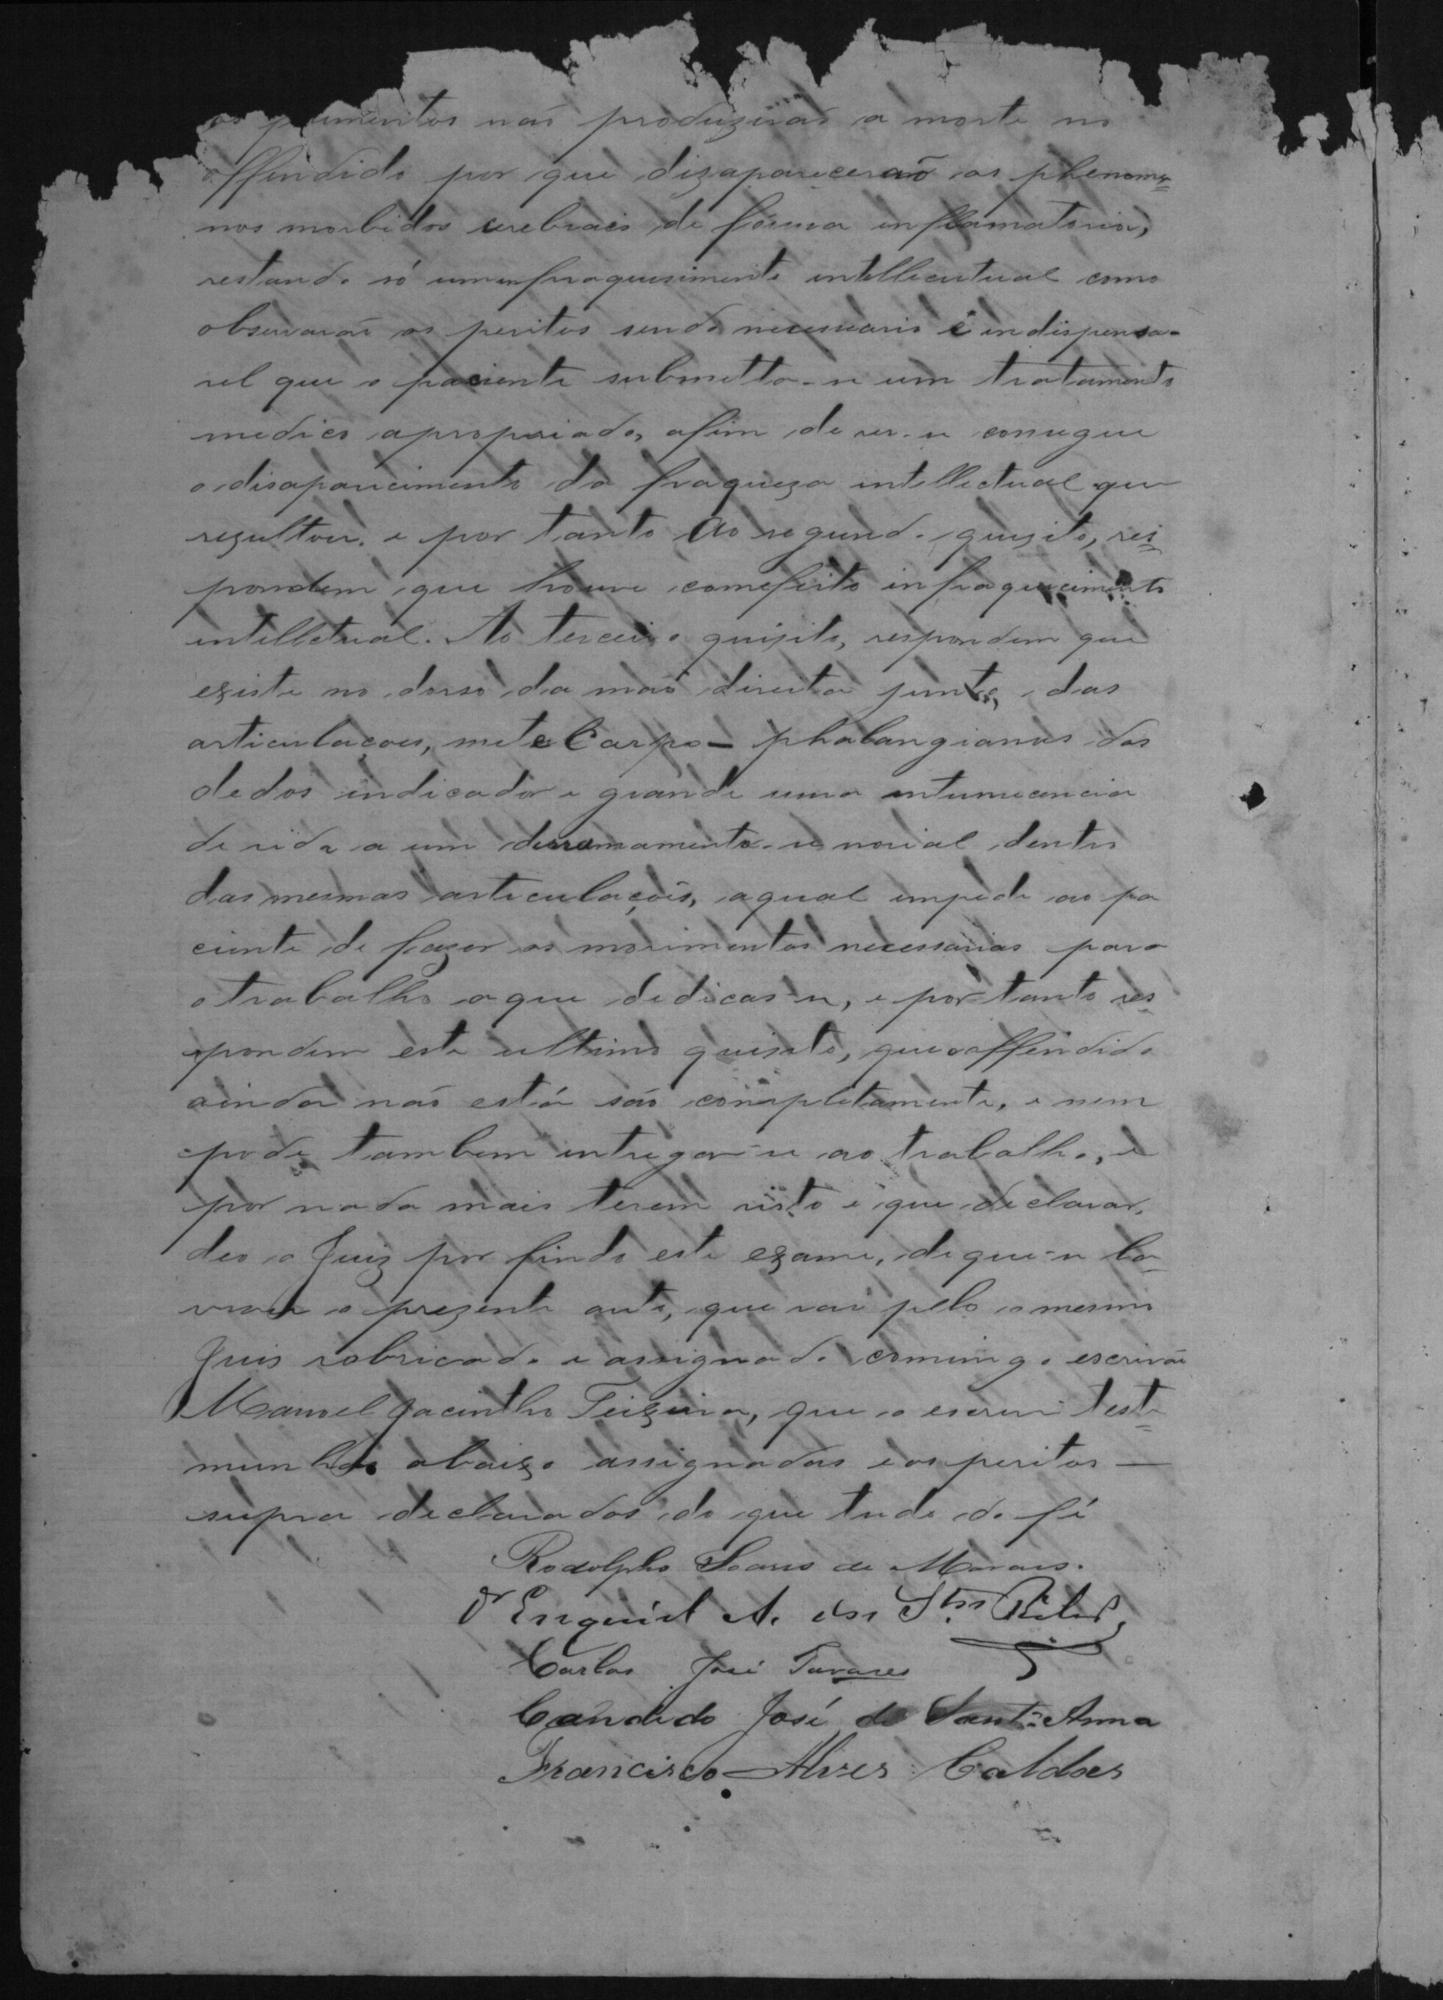 os ferimentos não produzirão a morte no
offendido por que dizaparecerão os phenome=
nos morbidos cerebraes de forma inflamatoria,
restando só um infraquesimento intellectual como
observarão os peritos sendo necessario e indispensa-
vel que o paciente submetta-se um tratamento
medico apropriado, afim de ver-se consegue
o disaparicimento da fraqueza intellectual que
rezultou. e por tanto Ao segundo quizito, res=
pondem que houve comefeito infraquecimento
intelletual. Ao terceiro quizito, respondem que
eziste no dorso da mão direita junto, das
articulaçoes, metecarpo-phalangianas dos
dedos indicador e grande uma intumecencia
devida a um derramamento-senovial dentro
das mesmas articulaçoẽs, aqual impede ao pa
ciente de fazer os movimentos necessarios para
o trabalho aque dedicas-se, e por tanto res
pondem este ultimo quisito, que o offendido
ainda não está são completamente, e nem
pode tambem entregar-se ao trabalho, e
por nada mais terem visto e que declarar,
deo o Juiz por findo este ezame, de que-se la-
vrou o prezente auto, que vai pelo o mesmo
Juis rubricado e assignado comingo escrivão
Manoel Jacintho Teizeira, que o escrevi teste=
munhas abaizo assignadas e os peritos —
supra declarados do que tudo do fé
Rodolpho Soares de Moraes.
Dr Ezequiel A. dos Stos
Carlos José Tavares
Candido José de Sant'Anna
Francisco Alves Caldas